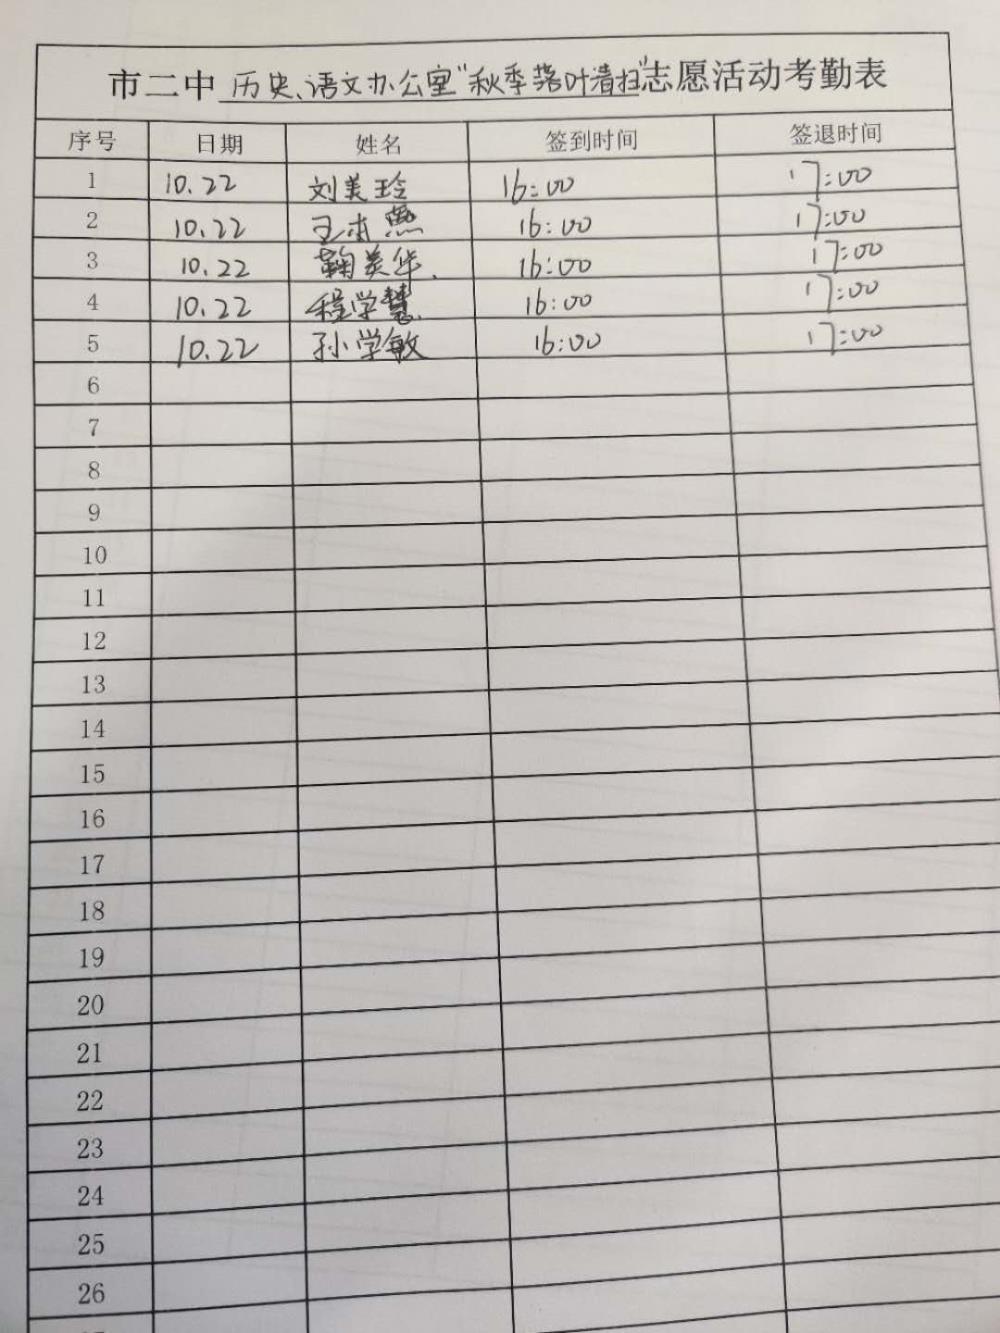 市二中历史、语文办公室“秋季落叶清扫”志愿活动考勤表
序号 日期 姓名 签到时间 签退时间
1 10.22 刘美玲 16:00 17:00
2 10.22 王 燕 16:00 17:00
3 10.22 鞠美华. 16:00 17:00
4 10.22 程学慧. 16:00 17:00
5 10.22 孙学敏 16:00 17:00
6
7
8
9
10
11
12
13
14
15
16
17
18
19
20
21
22
23
24
25
26